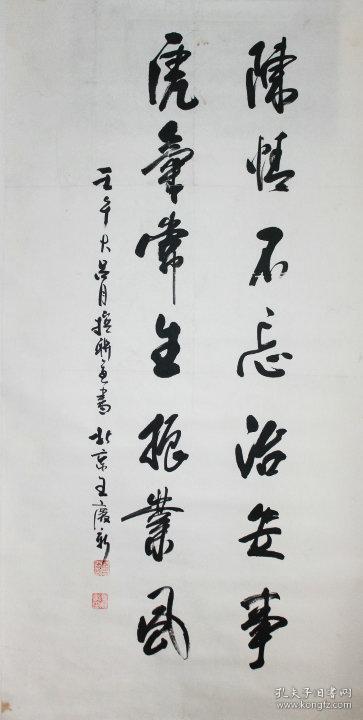 陳情不忘治安事
虎氣常生振業風
壬午大呂月撰聯並書 北京王
孔夫子旧书网
www.kongfz.com